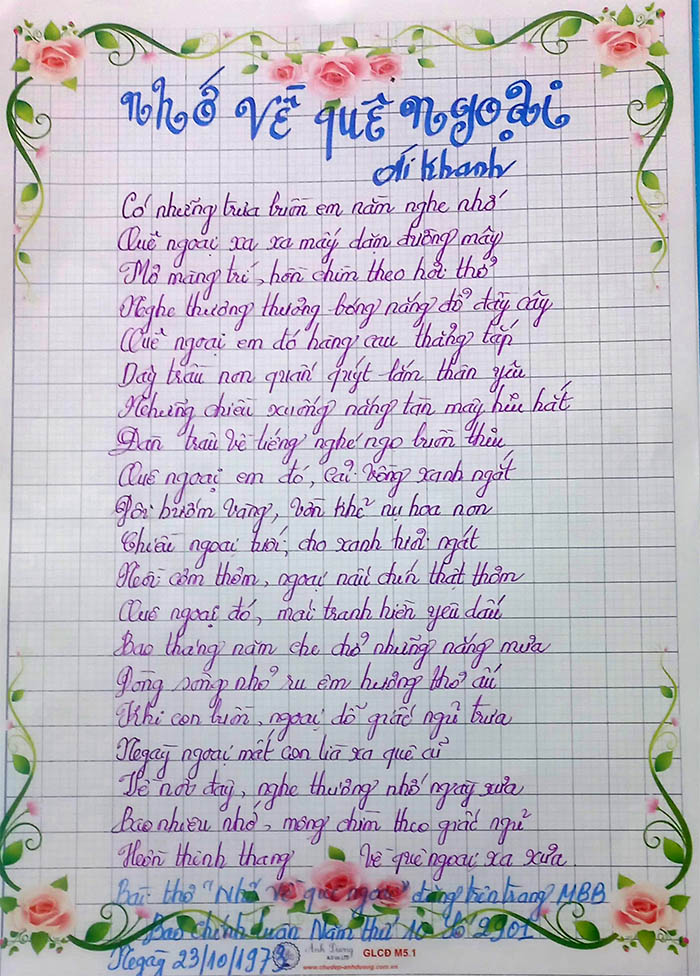 nhớ về quê ngoại
Ái Khanh
Có những trưa buồn em nằm nghe nhớ
Quê ngoại xa xa mấy dặm đường mây
Mơ màng trí, hồn chìm theo hơi thở
Nghe thương thương bóng nắng đổ đầy cây
Quê ngoại em đó hàng cau thẳng tắp
Dây trầu non quấn quýt lắm thân yêu
Những chiều xuống nắng tàn mây hiu hắt
Đàn trâu về tiếng nghé ngọ buồn thiu
Quê ngoại em đó, cải vồng xanh ngát
Đôi bướm vàng, vờn khẽ nụ hoa non
Chiều ngoại tưới, cho xanh tươi ngát
Nồi cơm thơm, ngoại nấu chín thật thơm
Quê ngoại đó, mái tranh hiền yêu dấu
Bao tháng năm che chở những nắng mưa
Dòng sông nhỏ ru êm hương thơ ấu
Khi con buồn, ngoại dỗ giấc ngủ trưa
Ngày ngoại mất con lìa xa quê cũ
Về nơi đây, nghe thương nhớ ngày xưa
Bao nhiêu nhớ, mộng chìm theo giấc ngủ
Hồn thênh thang về quê ngoại xa xưa.
Bài thơ "Nhớ về quê ngoại" đăng trên trang MBB
Báo Chính Luận Năm thứ 10 số 2901
Ngày 23/10/1973
Ánh Dương
GLCĐ M5.1
www.chudep-anhduong.com.vn